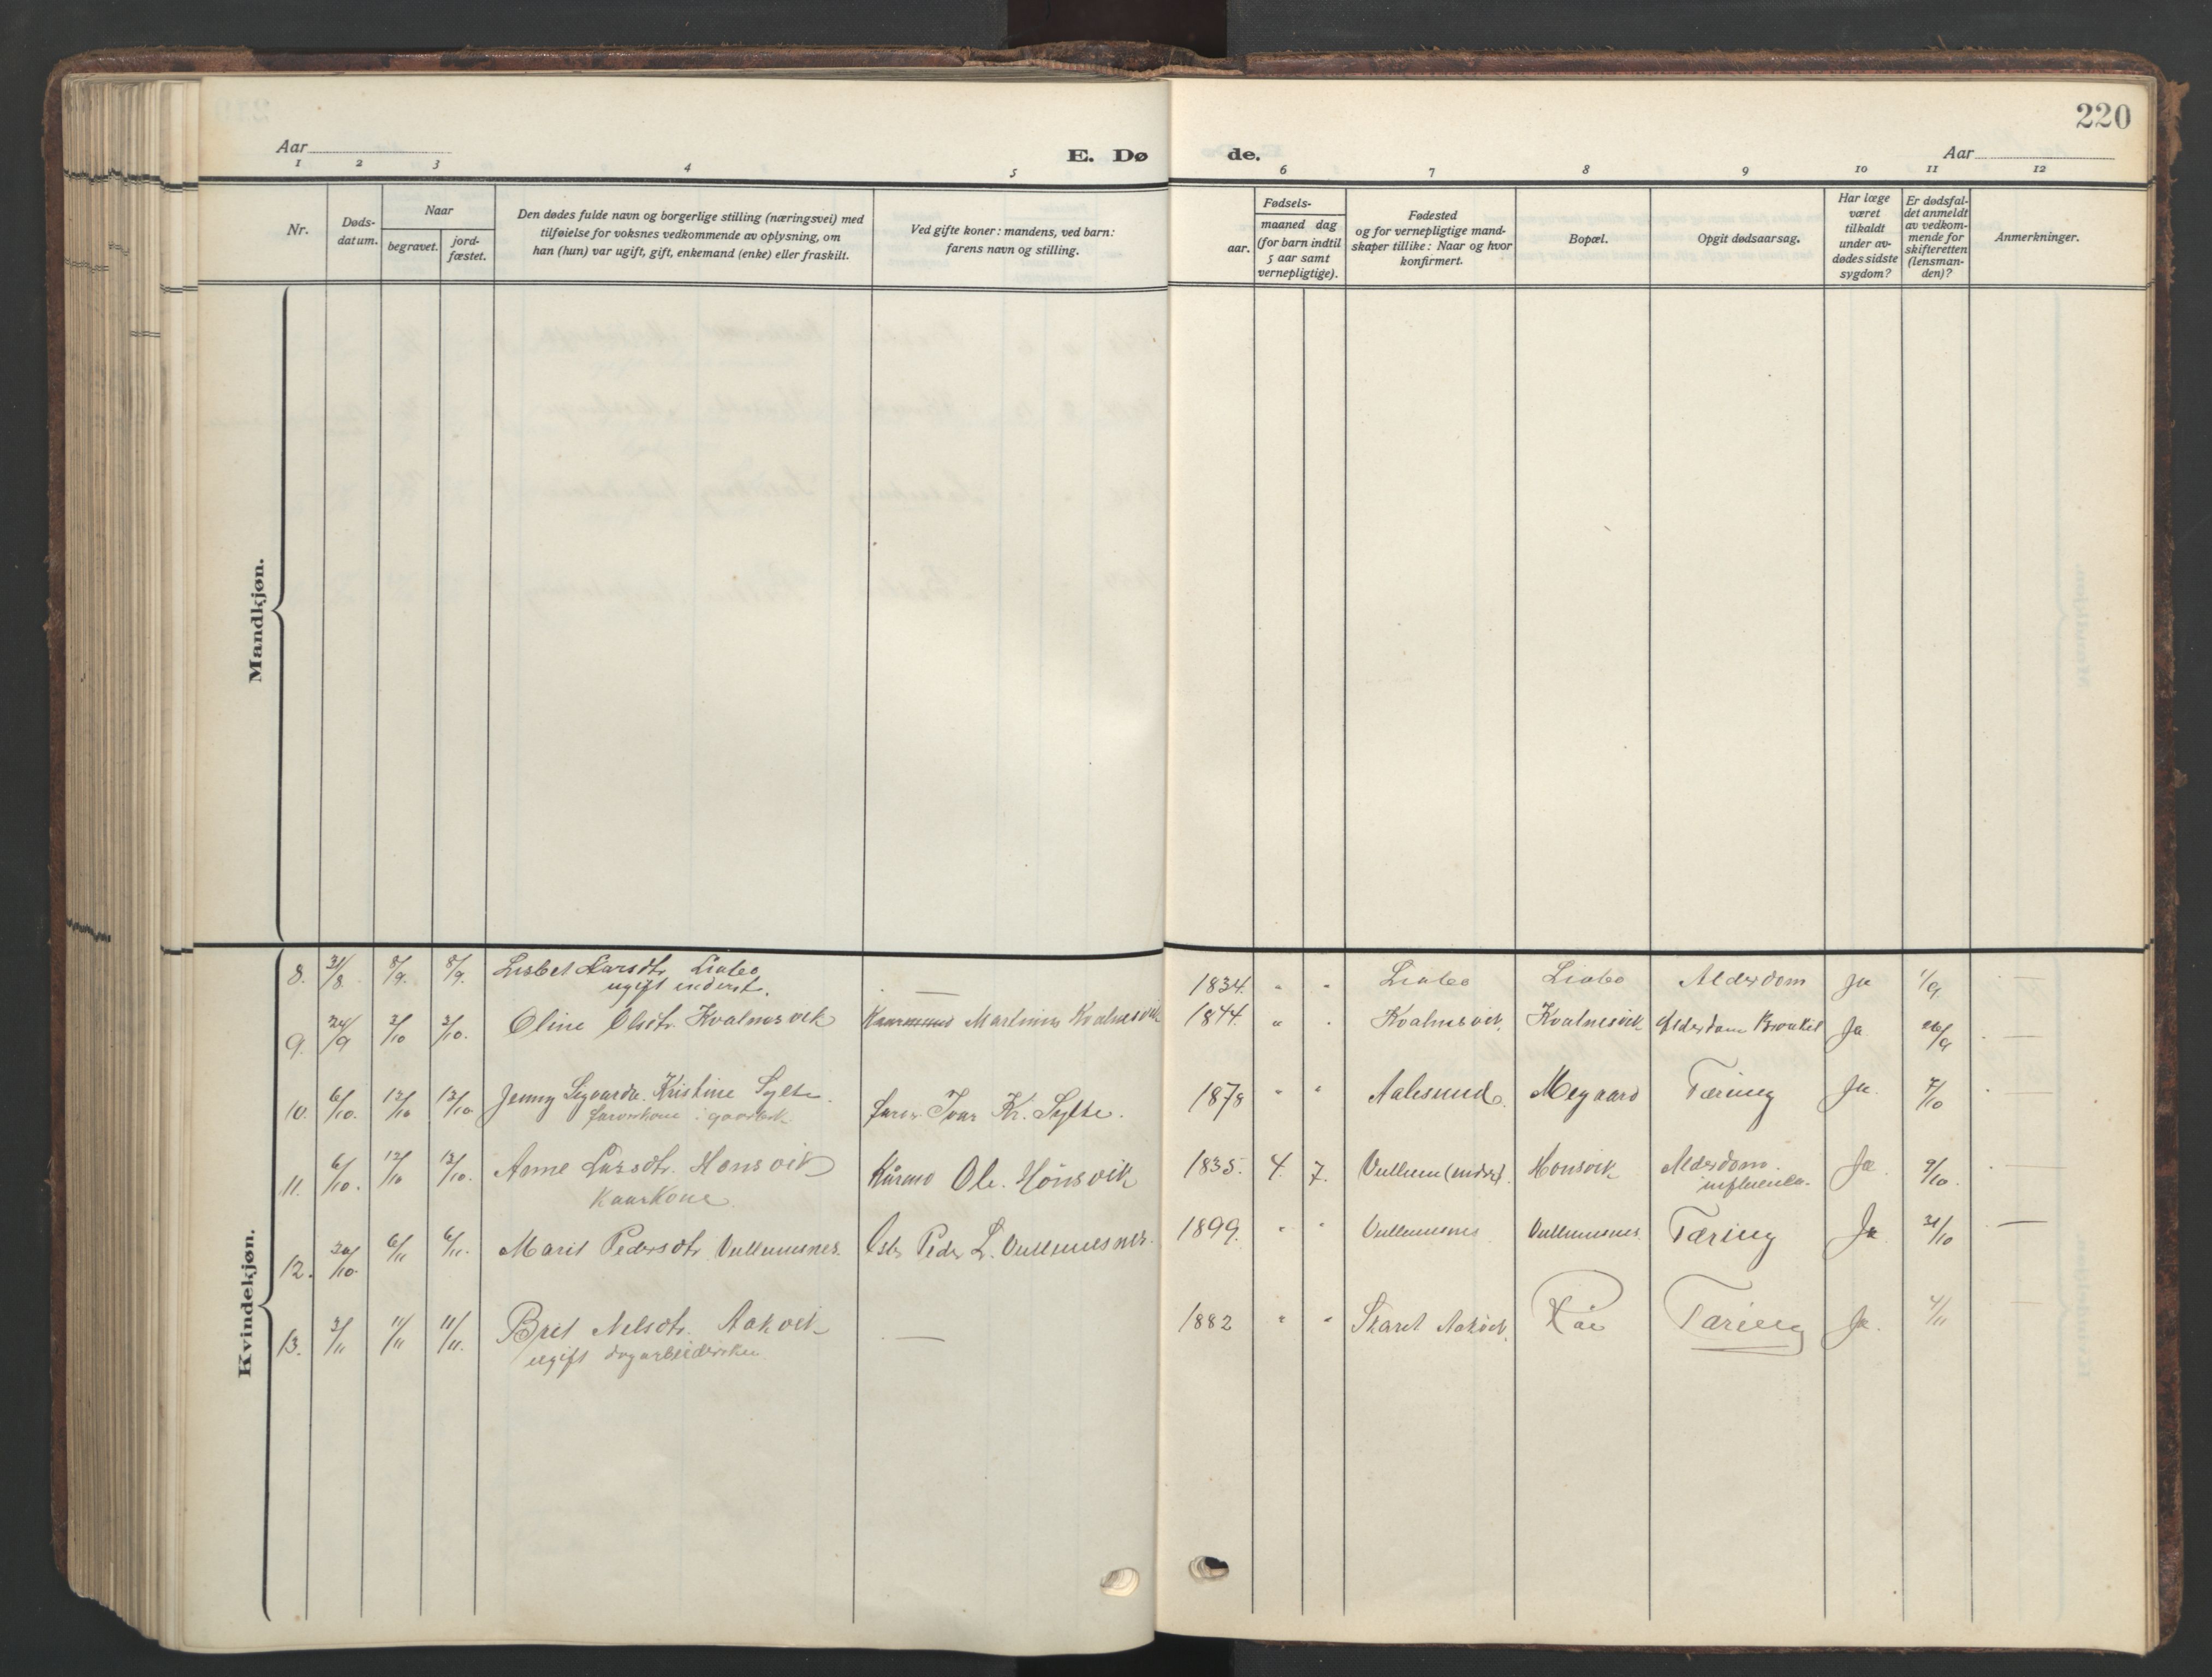 220
Aar
E. Dø de.
Aar
1 2 3 4 5 6 7 8 9 10 11 12
Nr.
Døds-
datum.
Naar
begravet.
jord-
fæstet.
Den dødes fulde navn og borgerlige stilling (næringsvei) med
tilføielse for voksnes vedkommende av oplysning, om
han (hun) var ugift, gift, enkemand (enke) eller fraskilt.
Ved gifte koner: mandens, ved barn:
farens navn og stilling.
aar.
Fødsels-
maaned dag
(for barn indtil
5 aar samt
vernepligtige).
Fødested
og for vernepligtige mand-
skaper tillike: Naar og hvor
konfirmert.
Bopæl.
Opgit dødsaarsag.
Har læge
været
tilkaldt
under av-
dødes sidste
sygdom?
Er dødsfal-
det anmeldt
av vedkom-
mende for
skifteretten
(lensman-
den)?
Anmerkninger.
Mandkjøn.
Kvindekjøn.
8. 31/8 8/9. 8/9. Lisbet Larsdtr. Liabø — 1834. " " Liabø Liabø Alderdom Ja 1/9 —
ugift inderst.
9. 24/9 3/10 3/10. Oline Olsdtr. Kvalnesvik Martinus Kvalnesvik 1844. " " Kvalnesvik. Kvalnesvik Alderdom Ja 26/9 —
10. 6/10. 12/10 12/10 Jenny Kristine Sylte. Ivar Kr. Sylte. 1878 " " Aalesund. Megaard Tæring Ja. 7/10
11. 6/10. 12/10 12/10. Anne Larsdtr. Hønsvik Kårmd Ole Hønsvik 1835. 4. 7. Vullum (indre). Hønsvik Alderdom. Ja 9/10. —
Kaarkone. influensa.
12. 30/10. 6/11 6/11. Marit Pedersdtr. Vullumsnes. Peder L. Vullumsnes. 1899. " " Vullumsnes Vullumsnes. Tæring Ja 31/10 —
13. 3/11 11/11 11/11. Brit Nilsdtr. Aakvik — 1882 " " Skaret Aakvik. Tæring Ja. 4/11 —
ugift dagarbeiderske.